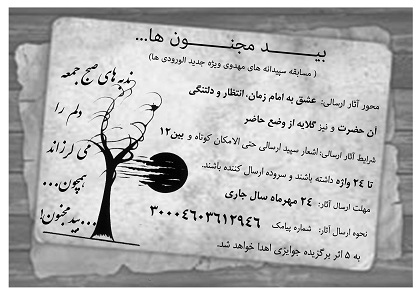 بیـــد مجنـــون ها...
( مسابقه سپیدانه های مهدوی ویژه جدید الورودی ها)
محور آثار ارسالی: عشق به امام زمان، انتظار و دلتنگی
آن حضرت و نیز گلایه از وضع حاضر
شرایط آثار ارسالی: اشعار سپید ارسالی حتی الامکان کوتاه و بین ۱۲
تا ۲۴ واژه داشته باشند و سروده ارسال کننده باشند.
مهلت ارسال آثار: ۲۴ مهرماه سال جاری
نحوه ارسال آثار: شماره پیامک ۳۰۰۰۴۶۰۳۶۱۲۹۴۶
به ۵ اثر برگزیده جوایزی اهدا خواهد شد.
ندبه های صبح جمعه
دلم را
می لرزاند
همچون...
...بید مجنون!